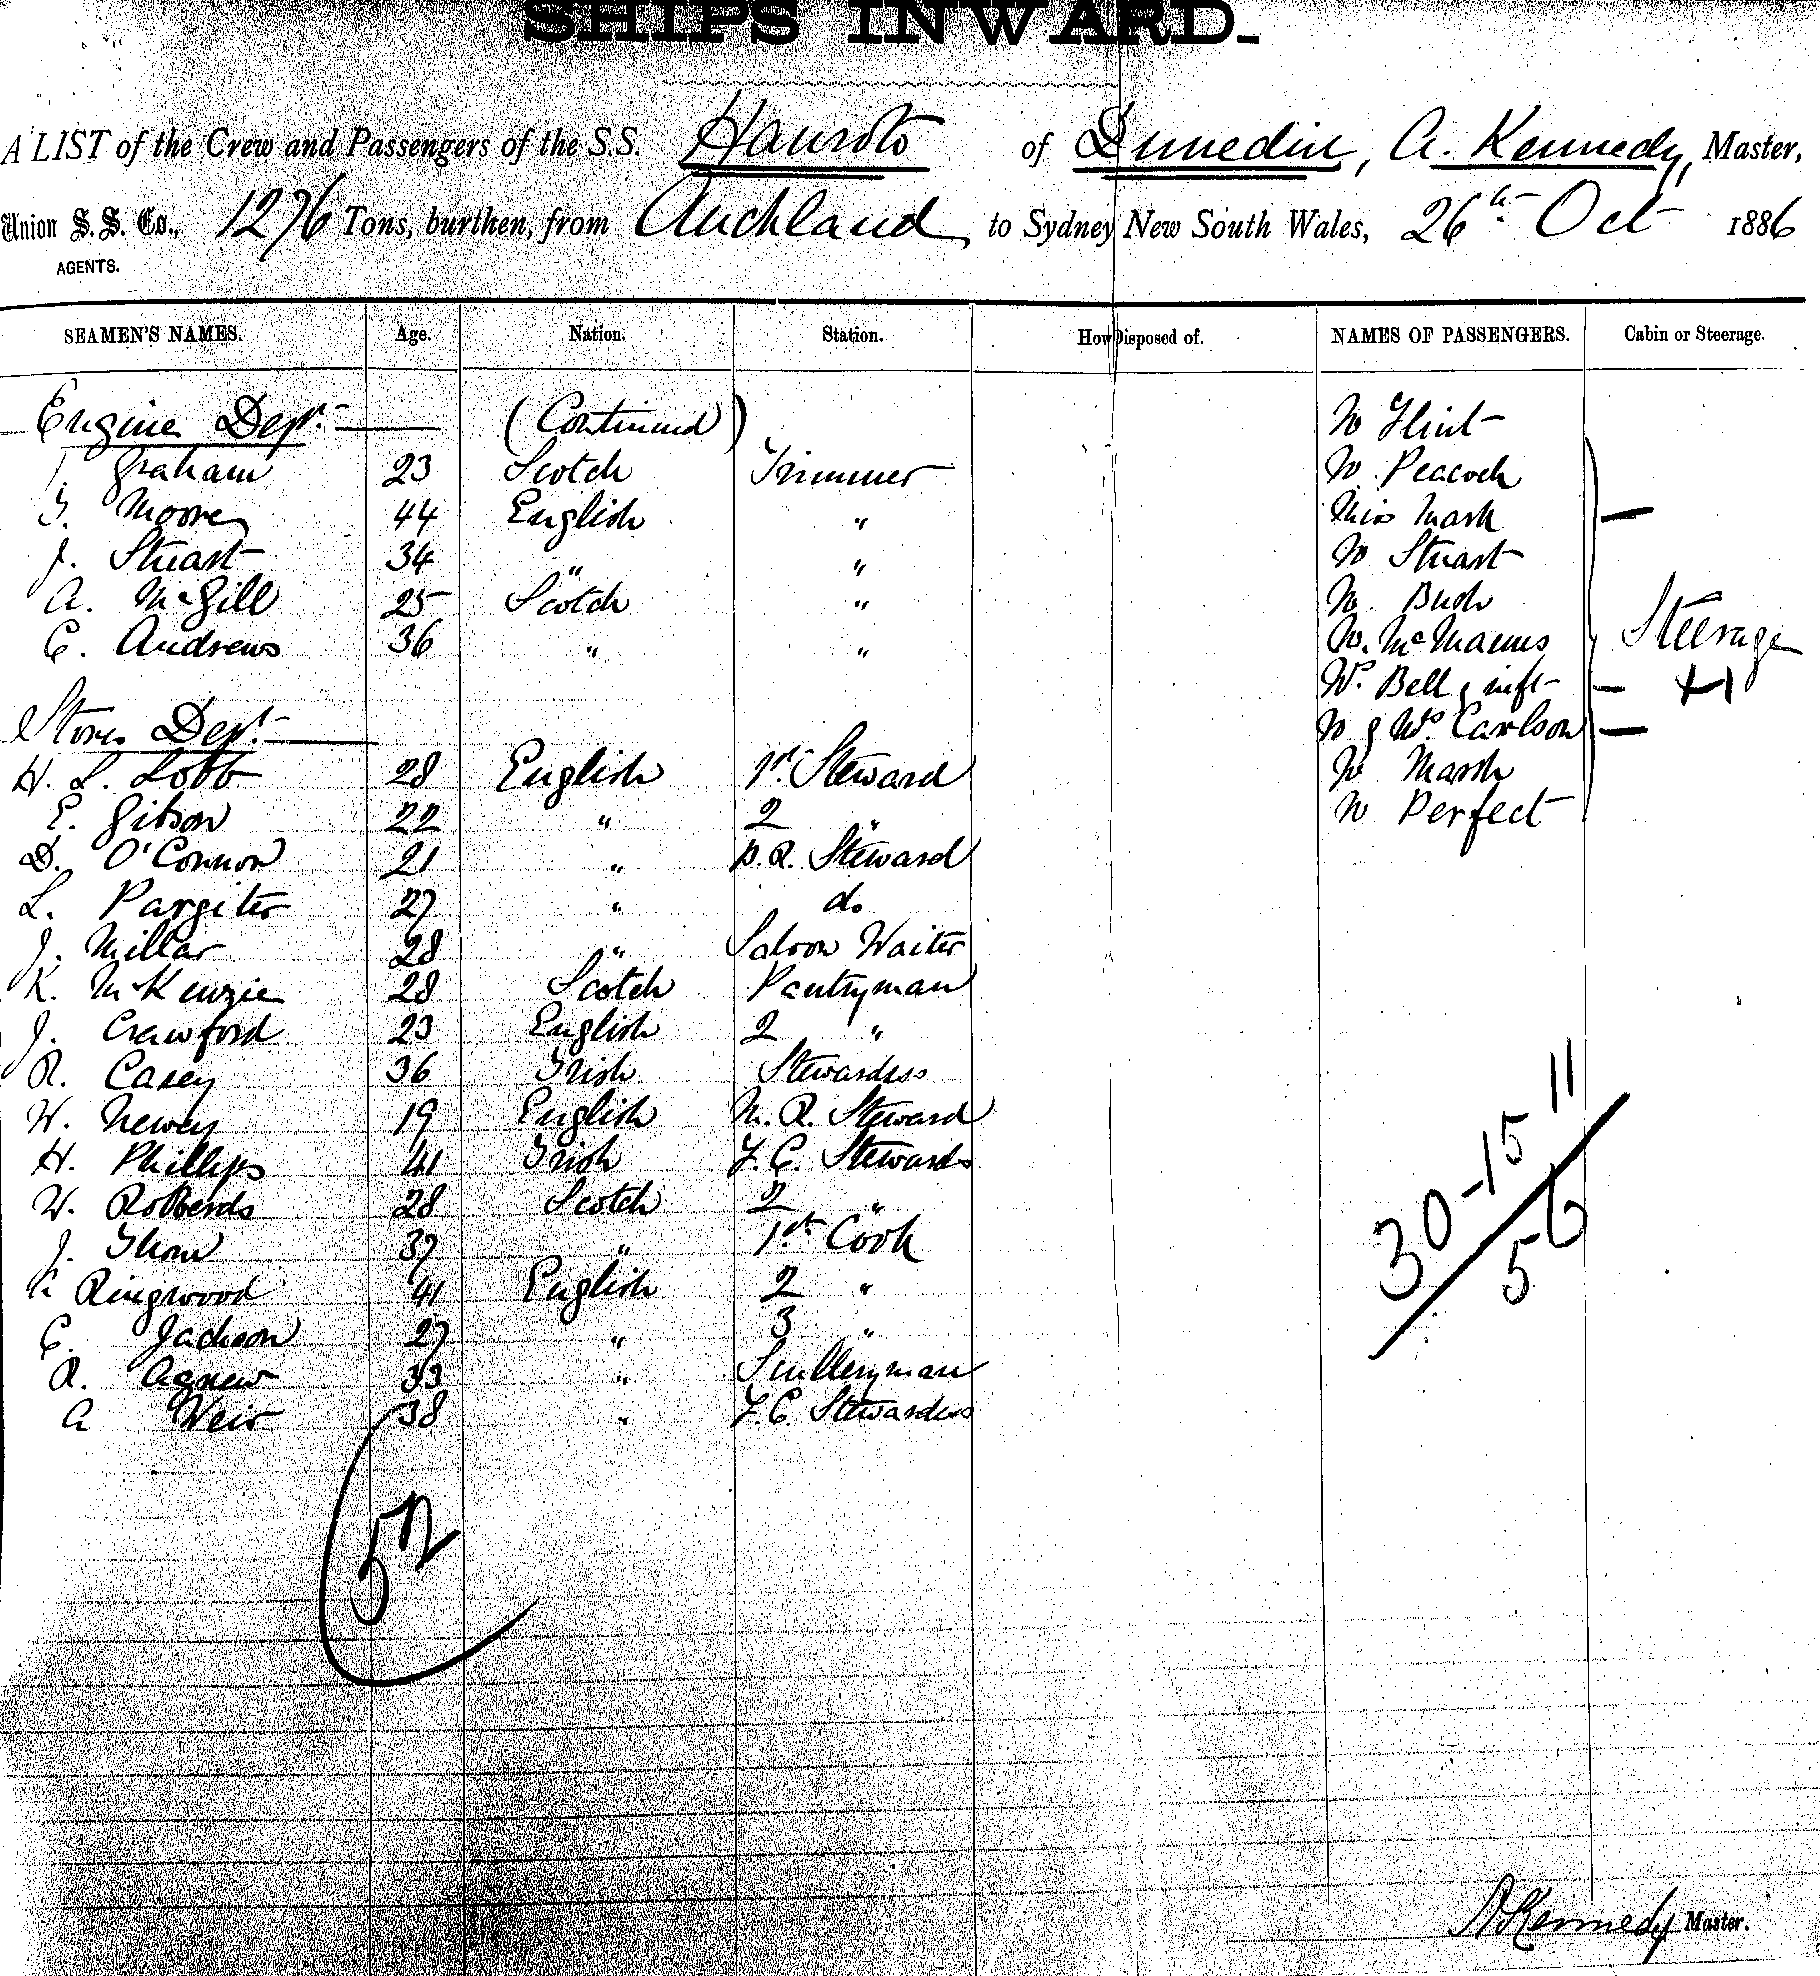 SHIPS INWARD.
A LIST of the Crew and Passengers of the S.S. Hauroto of Dunedin, A. Kennedy, Master,
Union S.S. Co., 1276 Tons, burthen, from Auckland to Sydney New South Wales, 26th Oct 1886
AGENTS.
SEAMEN'S NAMES. Age. Nation. Station. How Disposed of. NAMES OF PASSENGERS. Cabin or Steerage.
Engine Dept. (Continued) Mr Flint
Graham 23 Scotch Trimmer Mr Peacock
Moore 44 English " Miss Mark
J. Stuart 34 " " Mr Stuart
A. McGill 25 Scotch " Mr Bush
C. Andrews 36 " " Mr. McManus Steerage
Bell & inft
Stores Dept. Mr & Mrs Carlson
H. L. Lobb 28 English 1st. Steward Mr Marsh
E. Gibson 22 " 2 " Mr Perfect
D. O'Connor 21 " B.R. Steward
L. Pargiter 27 " do
J. Millar 28 " Saloon Waiter
K. McKenzie 28 Scotch Pantryman
J. Crawford 23 English 2 "
R. Casey 36 Irish Stewardess
W. Newey 19 English M. R. Steward
H. Phillips 41 Irish F.C. Stewards
W. Robberds 28 Scotch 2 "
J. Shaw 37 " 1st Cook
Ringwood 41 English 2 "
C. Jackson 27 " 3 "
R. Agnew 33 " Sculleryman
A Weir 38 " F.C. Stewardess
30-15 11
56
52
A Kennedy Master.